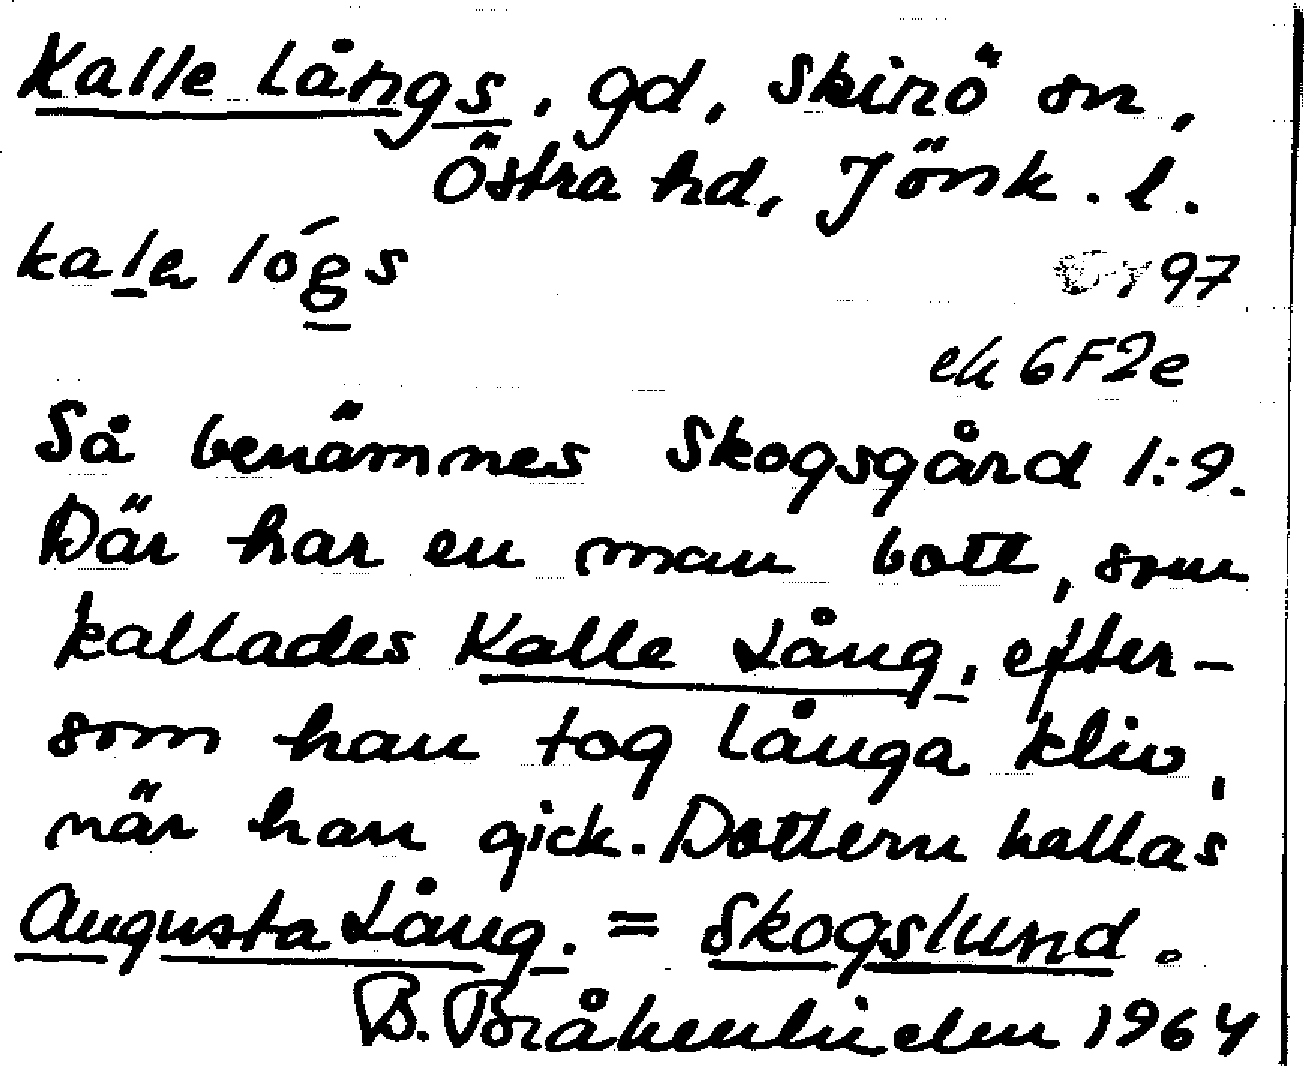 Kalle Långs, gd, Skirö sn,
Östra hd, Jönk. l.
kalə lóg̲s
97
ek 6F2e
Så benämnes Skogsgård 1:9.
Där har en man bott, som
kallades Kalle Lång, efter-
som han tog långa kliv,
när han gick. Dottern kallas
Augusta Lång. = Skogslund.
B. Bråkenhielm 1964